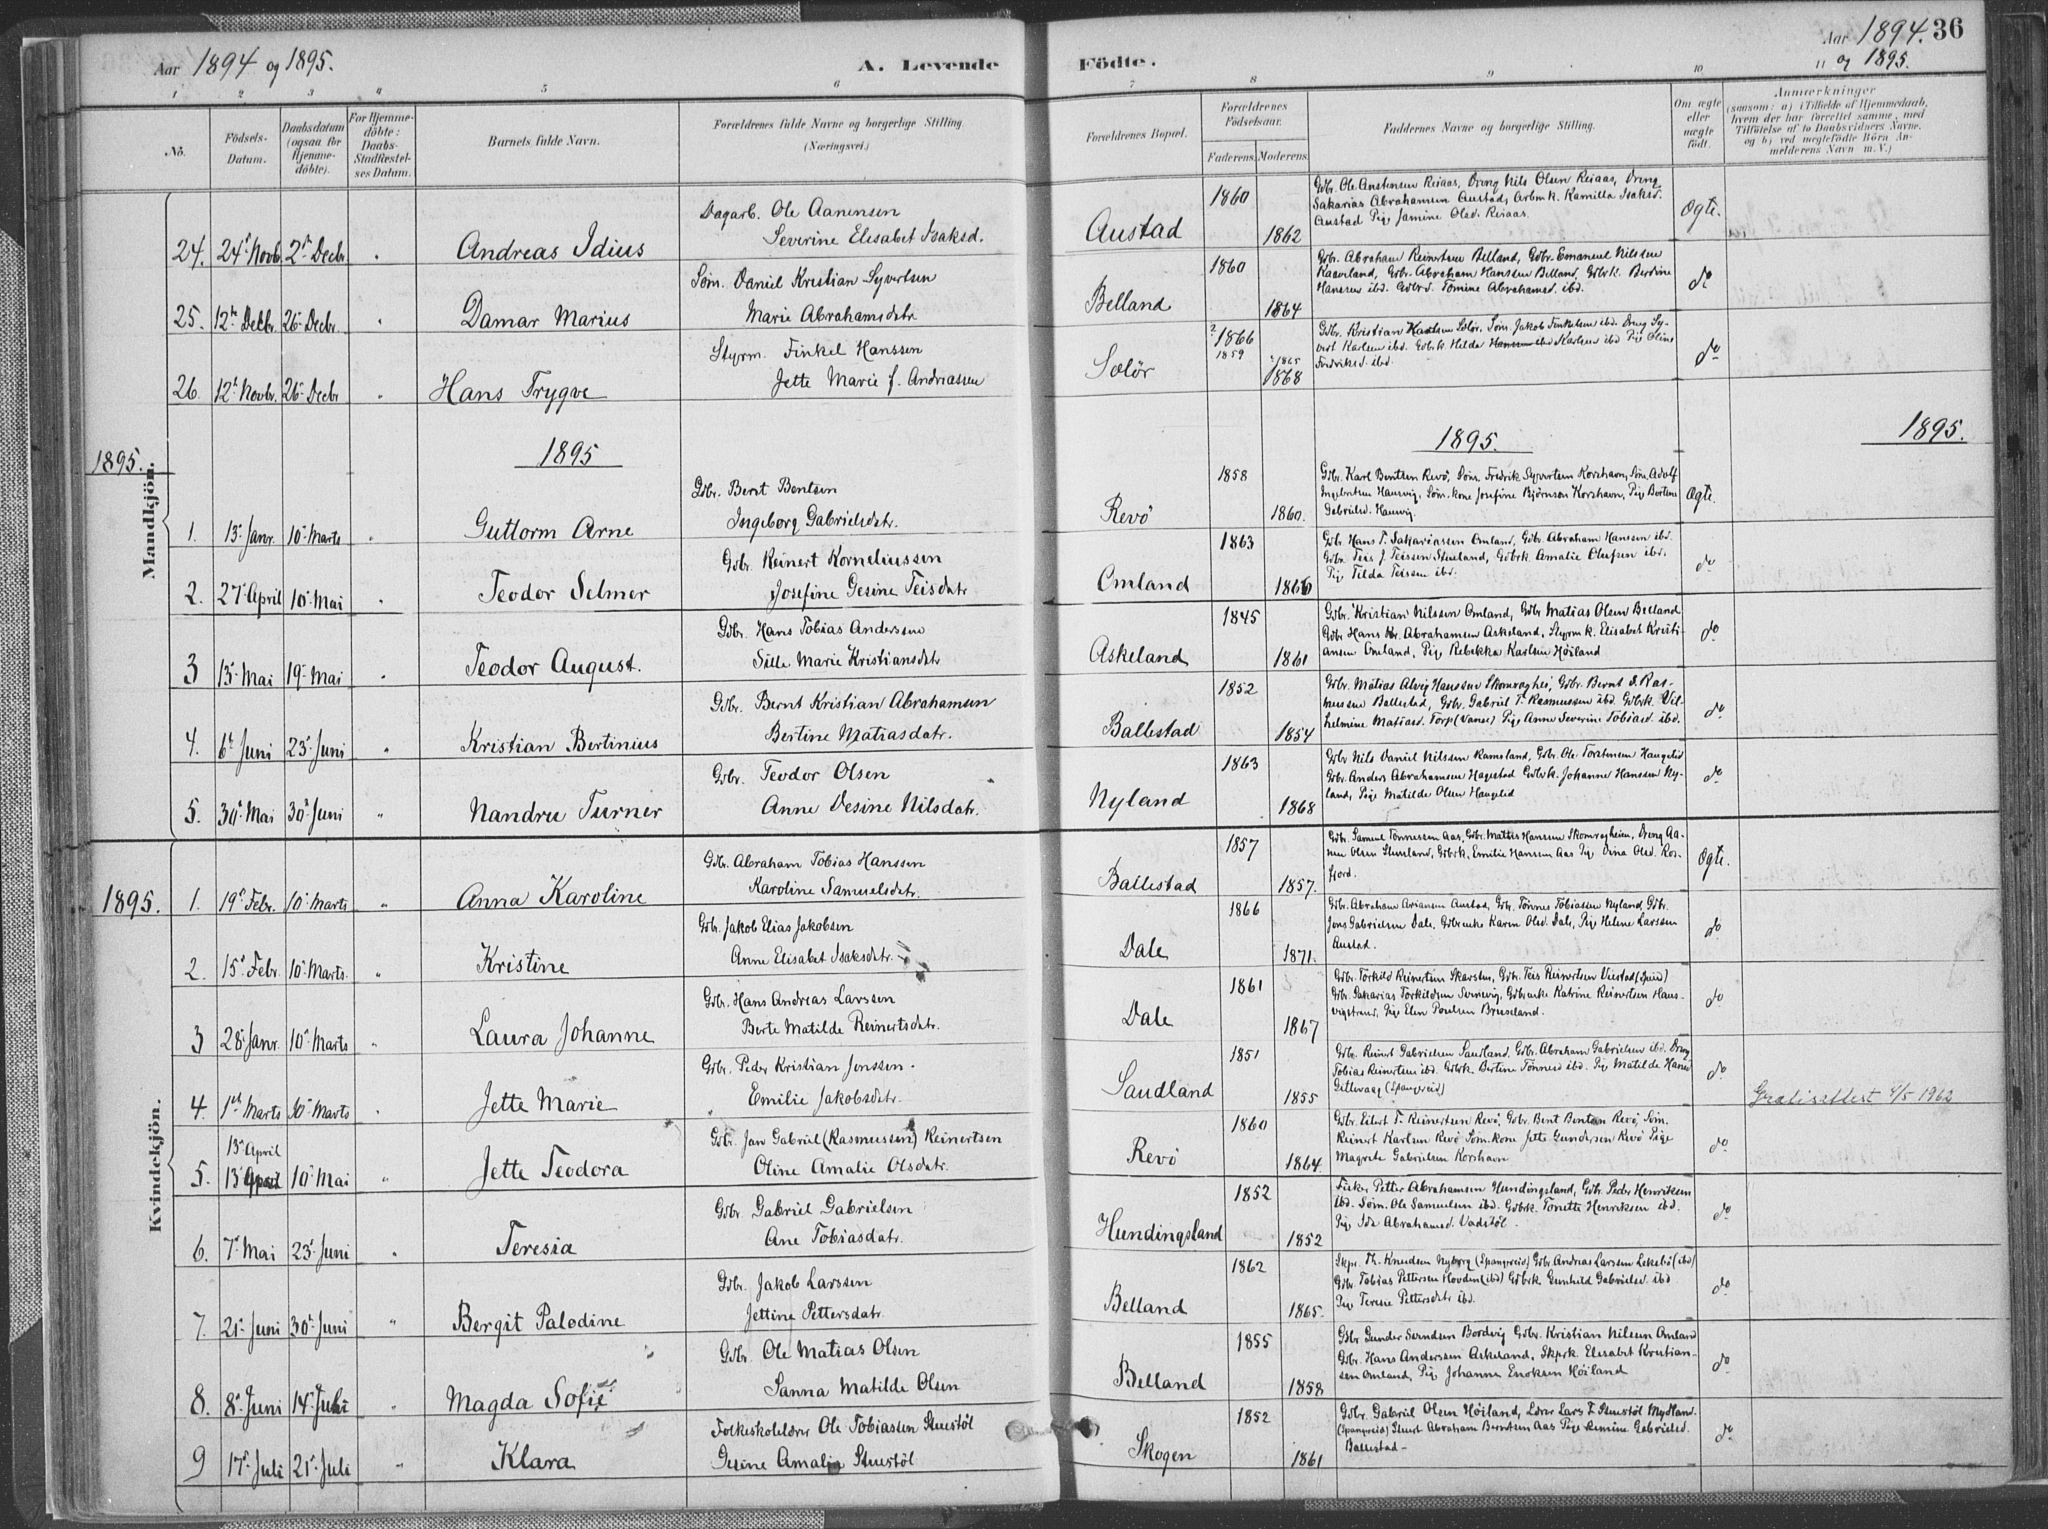 Aar 1894 og 1895.
A. Levende Födte.
Aar 1894. 36
og 1895.
1 2 3 4 5 6 7 8 9 10 11
No.
Födsels-Datum.
Daabsdatum (ogsaa for Hjemmedöbte).
For Hjemmedöbte: Daabs-Stadfæstelses Datum.
Barnets fulde Navn.
Forældrenes fulde Navne og borgerlige Stilling.
(Næringsvei.)
Forældrenes Bopæl.
Forældrenes Födselsaar.
Faderens. Moderens.
Faddernes Navne og borgerlige Stilling.
Om ægte eller uægte födt.
Anmærkninger
(saasom: a) i Tilfælde af Hjemmedaab, hvem der har forrettet samme, med Tilföielse af to Daabsvidners Navne, og b) ved uægtefödte Börn Anmelderens Navn m. V.)
Mandkjön.
24. 24 Novb. 2 Decbr. " Andreas Idius
Dagarb. Ole Aanensen
Severine Elisabet Isaksd.
Austad 1860 1862
Gdbr. Ole Anstensen Reiaas, Dreng Nils Olsen Reiaas, Dreng
Sakarias Abrahamsen Austad, Arbmk. Kamilla Isaksd.
Austad Pig. Jamine Olsd. Reiaas.
Ægte.
25. 12 Decbr. 26 Decbr. " Damar Marius
Søm. Daniel Kristian Syvertsen
Marie Abrahamsdatr.
Belland 1860 1864
Gdbr. Abraham Reinertsen Belland, Gdbr. Emanuel Nilssen
Gdbr. Abraham Hanssen Belland, Gdbrk. Berdine
Hanssen ibd. Gdbrd. Tomine Abrahamsd. ibd.
do
26. 12 Novbr. 26 Decbr. " Hans Trygve
Styrm. Finkel Hanssen
Jette Marie f. Andreassen
Sælør 1866 1859 1865 1868
Gdbr. Kristian Karlsen Sælør, Søm. Jakob Finkelsen ibd. Dreng Sy-
vert Karlsen ibd. Gdbrk Hilda Karlsen ibd Pig Oline
Fredriksd. ibd.
do
1895. 1895 1895. 1895.
1. 13 Janr. 10 Marts " Guttorm Arne
Gdbr. Bernt Bentsen
Ingeborg Gabrielsdatr.
Revö 1858 1860.
Gdbr. Karl Bentsen Revö, Søm. Fredrik Syvertsen Korshavn, Søm. Adolf
Ingebretsen Hausvig, Søm.kone Josefine Björnsen Korshavn, Pig Bertine
Gabrielsd. Hausvig.
Ægte.
2. 27 April 10 Mai " Teodor Selmer
Gdbr. Reinert Korneliussen
Josefine Gesine Teisdatr
Omland 1863 1866
Gdbr. Hans T. Sakariassen Omland, Gdbr. Abraham Hanssen ibd.
Gdbr. Teis J. Teissen Stusland, Gdbrk. Amalie Olufsen ibd.
Pig. Tilda Teissen ibd.
do
3 13 Mai 19 Mai " Teodor August.
Gdbr. Hans Tobias Anderssen
Sille Marie Kristiansdatr
Askeland 1845 1861
Gdbr. Kristian Nilssen Omland, Gdbr Matias Olsen Belland
Gdbr Hans Kr. Abrahamsen Askeland, Styrmk. Elisabet Kristi-
ansen Omland, Pig. Rebekka Karlsen Höiland
do
4. 6 Juni 23 Juni " Kristian Bertinius
Gdbr. Bernt Kristian Abrahamsen
Bertine Matiasdatr.
Ballestad 1852 1854
Gdbr. Matias Alvig Hanssen Skomraghei, Gdbr. Bernt S. Ras-
mussen Ballestad, Gdbr. Gabriel T. Rasmussen ibd. Gdbrk. Vil-
helmine Matiasd. Torp (Vanse) Pig. Anne Severine Tobiasd. ibd.
do
5. 30 Mai 30 Juni " Nandru Turner
Gdbr. Teodor Olsen
Anne Desine Nilsdatr.
Nyland 1863 1868
Gdbr Nils Daniel Nilssen Ramsland, Gdbr. Ole Torstensen Haugelid
Gdbr. Anders Abrahamsen Hagestad Gdbrk. Johanne Hanssen Ny-
land, Pig. Matilde Olsen Haugelid
do
Kvindekjön.
1895. 1. 19 Febr. 10 Marts " Anna Karoline
Gdbr. Abraham Tobias Hanssen
Karoline Samuelsdatr.
Ballestad 1857 1857.
Gdbr. Samuel Tönnessen Aas, Gdbr. Mattis Hanssen Skomragheien, Dreng Aa-
nen Olsen Stusland, Gdbrk. Emilie Hansen Aas Pig Dina Olsd. Ros-
fjord.
Ægte.
2. 15 Febr. 10 Marts. " Kristine
Gdbr. Jakob Elias Jakobsen
Anne Elisabet Isaksdatr.
Dale 1866 1871.
Gdbr. Abraham Ariansen Austad, Gdbr. Tönnes Tobiassen Nyland, Gdbr.
Jens Gabrielsen Dale, Gdbrenke Karen Olsd. Dale, Pig. Helene Larssen
Austad.
do
3 28 Janr. 10 Marts " Laura Johanne
Gdbr. Hans Andreas Larssen
Berte Matilde Reinertsdatr.
Dale 1861 1867
Gdbr. Torkild Reinertsen Skarstein, Gdbr. Teis Reinertsen
Gdbr. Sakarias Torkildsen Gdbrenke Katrine Reinertsen Haus-
vigstrand, Pig. Elen Poulsen Bruseland.
do
4. 1 Marts 10 Marts " Jette Marie
Gdbr. Peder Kristian Jenssen.
Emilie Jakobsdatr.
Saudland 1851 1855
Gdbr. Reinert Gabrielsen Saudland, Gdbr. Abraham Gabrielsen ibd. Dreng
Tobias Reinertsen ibd. Gdbrk. Bertine Tönnesd ibd. Pig Matilde Hans
Gitlevaag (Spangereid)
do Gratisattest 4/5 1962
5. 13 April 13 April 10 Mai " Jette Teodora
Gdbr. Jan Gabriel (Rasmussen) Reinertsen
Oline Amalie Olsdatr.
Revö 1860 1864.
Gdbr. Eilert T. Reinertsen Revö, Gdbr. Bent Bentsen Revö, Søm.
Reinert Karlsen Revö Søm.kone Jette Gundersen Revö Pige
Magrete Gabrielsen Korshavn
do
6. 7 Mai 23 Juni " Teresia
Gdbr. Gabriel Gabrielsen
Ane Tobiasdatr.
Hundingsland 1852 1852
Fisker Petter Abrahamsen Hundingsland, Gdbr. Peder Henriksen
ibd. Søm. Ole Samuelsen ibd. Gdbrk. Tonette Henriksen ibd.
Pig. Ida Abrahamsd. Vadstöl.
do
7. 21 Juni 30 Juni " Bergit Palodine
Gdbr. Jakob Larssen
Jettine Pettersdatr.
Belland 1862 1865.
Skpr. Th. Knudsen Nyborg (Spangereid) Gdbr Andreas Larssen (ibd)
Gdbr. Tobias Pettersen Hovden (ibd) Gdbrk. Gunhild Gabrielsd. ibd
Pig Terese Pettersdatr ibd.
do
8. 8 Juni 14 Juli " Magda Sofie
Gdbr. Ole Matias Olsen
Sanna Matilde Olsen
Belland 1855 1858
Gdbr Gunder Svendsen Bordvig Gdbr. Kristian Nilsen Omland
Gdbr. Hans Anderssen Askeland, Skprk. Elisabet Kristian-
sen Omland, Pig. Johanne Enoksen Höiland
do
9 17 Juli 21 Juli " Klara
Folkeskolelærer Ole Tobiassen Stustöl
Gesine Amalia Stustöl
Skogen 1852 1861
Gdbr. Gabriel Olsen Höiland, Lærer Lars T. Stustöl Mydland.
(Spangereid) Abraham Berntsen Aas Pige Gabrielsd.
Ballestad
do